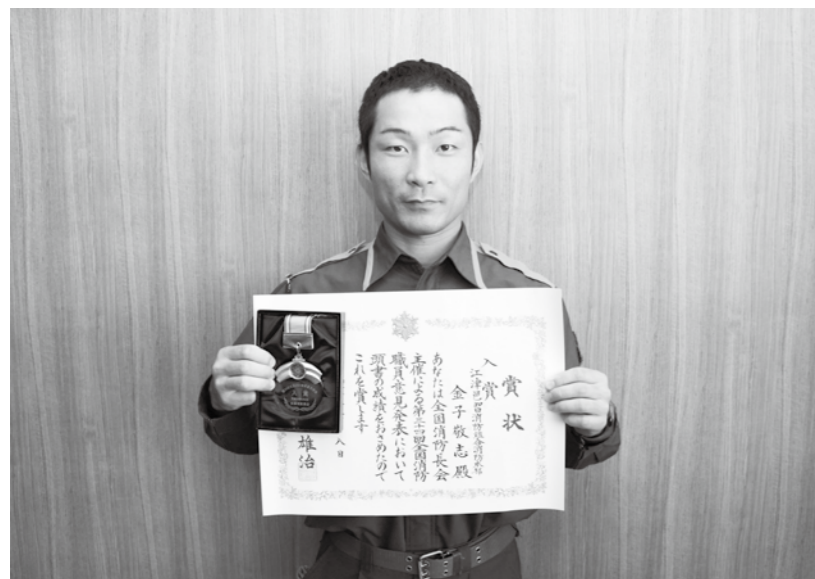 賞状
入賞
江津邑智消防組合消防本部
金子敬志殿
あなたは全国消防長会
主催による第三十四回全国消防
職員意見発表において
頭書の成績をおさめたので
これを賞します
八日
雄治